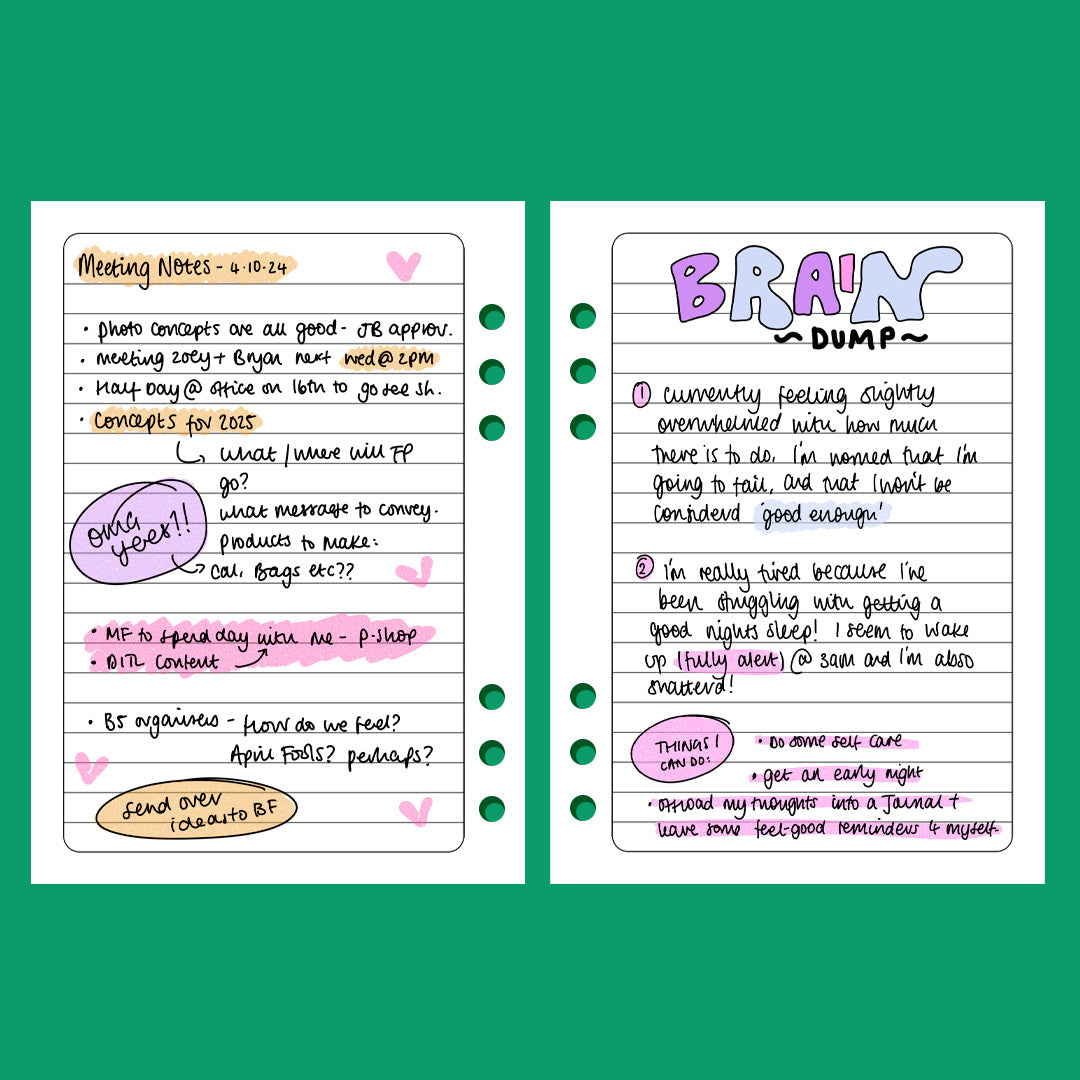 Meeting Notes - 4.10.24
• photo concepts are all good - JB approv.
• meeting zoey + Bryan next wed @ 2PM
• Half Day @ office on 16th to go see sh.
• Concepts for 2025
what / where will FP
go?
what message to convey.
products to make:
Cal, Bags etc??
omg
yees?!
• MF to spend day with me - P-shop
• DITL content
• B5 organisers - How do we feel?
April Fools? perhaps?
send over
ideas to BF
BRAIN
~ DUMP ~
1 Currently feeling slightly
overwhelmed with how much
there is to do, I'm worried that I'm
going to fail, and that I won't be
considerd 'good enough'
2 I'm really tired because I've
been struggling with getting a
good nights sleep! I seem to wake
up (fully alert) @ 3am and I'm abso
shatterd!
THINGS I
CAN DO:
• Do some self care
• get an early night
• Offload my thoughts into a Journal +
leave some feel-good reminders 4 myself.